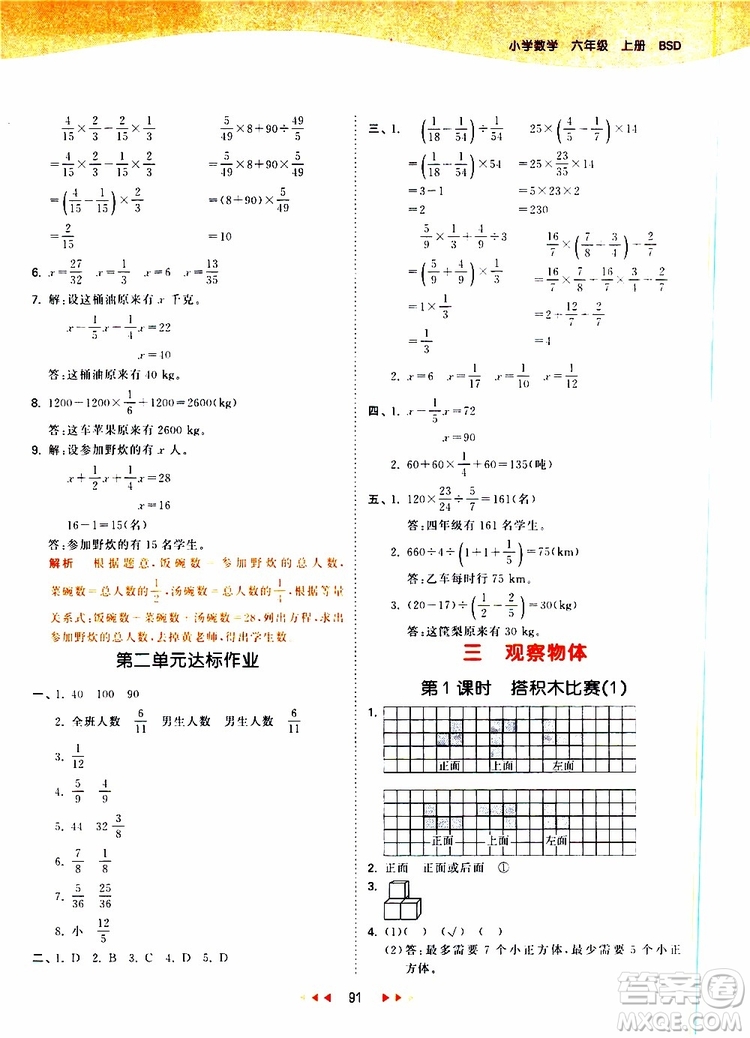 小学数学 六年级 上册 BSD
4/15×2/3－2/15×1/3 5/49×8+90÷49/5
=4/15×2/3－1/15×2/3 =5/49×8+90×5/49
=(4/15－1/15)×2/3 =(8+90)×5/49
=2/15 =10
6. x=27/32 x=1/3 x=6 x=13/35
7. 解:设这桶油原来有 x 千克。
x－1/5x－1/4x=22
x=40
答:这桶油原来有 40 kg。
8. 1200－1200×1/6+1200=2600(kg)
答:这车苹果原来有 2600 kg。
9. 解:设参加野炊的有 x 人。
x+1/2x+1/4x=28
x=16
16－1=15(名)
答:参加野炊的有 15 名学生。
解析 根据题意,饭碗数=参加野炊的总人数,
菜碗数=总人数的1/2,汤碗数=总人数的1/4,根据等量
关系式:饭碗数+菜碗数+汤碗数=28,列出方程,求出
参加野炊的总人数,去掉黄老师,得出学生数。
第二单元达标作业
一、1. 40 100 90
2. 全班人数 6/11 男生人数 男生人数 6/11
3. 1/12
4. 5/9 4/9
5. 44 32 3/8
6. 7/8 1/8
7. 5/36 25/36
8. 小 12/5
二、1. D 2. B 3. C 4. D 5. D
三、1. (1/18－1/54)÷1/54 25×(4/5－1/7)×14
=(1/18－1/54)×54 =25×23/35×14
=3－1 =5×23×2
=2 =230
5/9×1/3+4/9÷3 16/7×(7/8－6/7)+2/7÷2/16
=(5/9+4/9)×1/3 =16/7×7/8－16/7×6/7+16/7
=1×1/3 =2+2/7
=1/3 =4
2. x=6 x=1/17 x=10 x=1/3
四、1. x－1/5x=72
x=90
2. 60+60×1/4+60=135(吨)
五、1. 120×23/24÷5/7=161(名)
答:四年级有 161 名学生。
2. 660÷4÷(1+1+1/5)=75(km)
答:乙车每时行 75 km。
3. (20－17)÷1/5×2=30(kg)
答:这筐梨原来有 30 kg。
三 观察物体
第 1 课时 搭积木比赛(1)
1.
正面 上面 左面
正面 上面 左面
2. 正面 正面或后面 ①
3.
4. (1)( ) (√) ( )
(2)答:最多需要 7 个小正方体,最少需要 5 个小正
方体。
91
答案圈
MXQE.COM